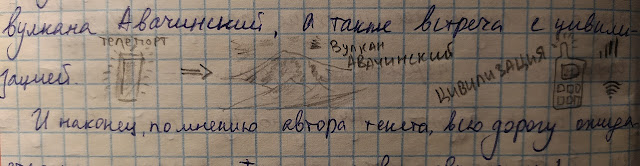 вулкана Авачинский, а также встреча с цивили-
ТЕЛЕПОРТ
Вулкан
Авачинский
ЦИВИЛИЗАЦИЯ
зацией.
И наконец, по мнению автора текста, всю дорогу